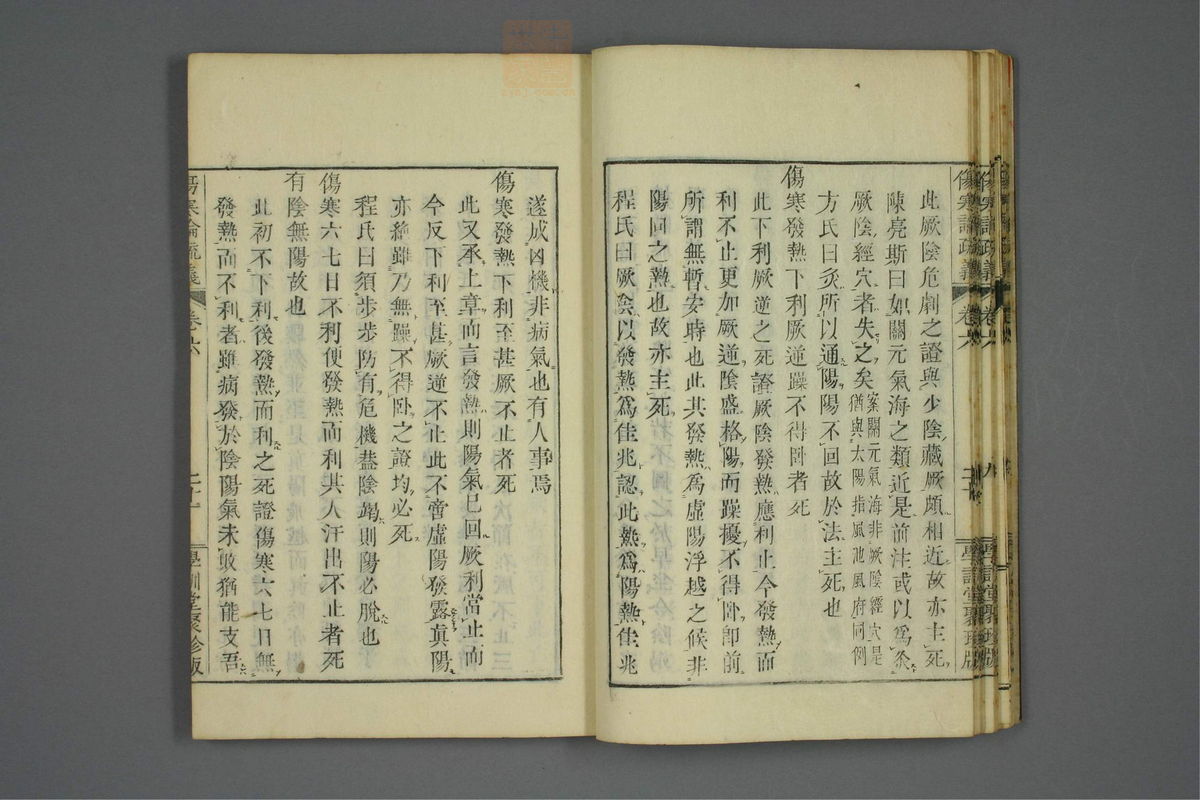 此厥陰危劇之證與少陰藏厥頗相近故亦主死
陳亮斯曰如關元氣海之類近是前注或以爲灸
厥陰經穴者失之矣案關元氣海非厥陰經穴是
猶與太陽指風池風府同例
方氏曰灸所以通陽陽不回故於法主死也
傷寒發熱下利厥逆躁不得臥者死
此下利厥逆之死證厥陰發熱應利止今發熱而
利不止更加厥逆陰盛格陽而躁擾不得臥即前
所謂無暫安時也此其發熱爲虛陽浮越之候非
陽回之熱也故亦主死
程氏曰厥陰以發熱爲佳兆認此熱爲陽熱佳兆
遂成凶機非病氣也有人事焉
傷寒發熱下利至甚厥不止者死
此又承上章而言發熱則陽氣已回厥利當止而
今反下利至甚厥逆不止此不啻虛陽發露真陽
亦絕雖乃無躁不得臥之證均必死
程氏曰須步步防有危機蓋陰竭則陽必脫也
傷寒六七日不利便發熱而利其人汗出不止者死
有陰無陽故也
此初不下利後發熱而利之死證傷寒六七日無
發熱而不利者雖病發於陰陽氣未敗猶能支吾
傷寒論疏義
卷六
學訓堂聚珍版